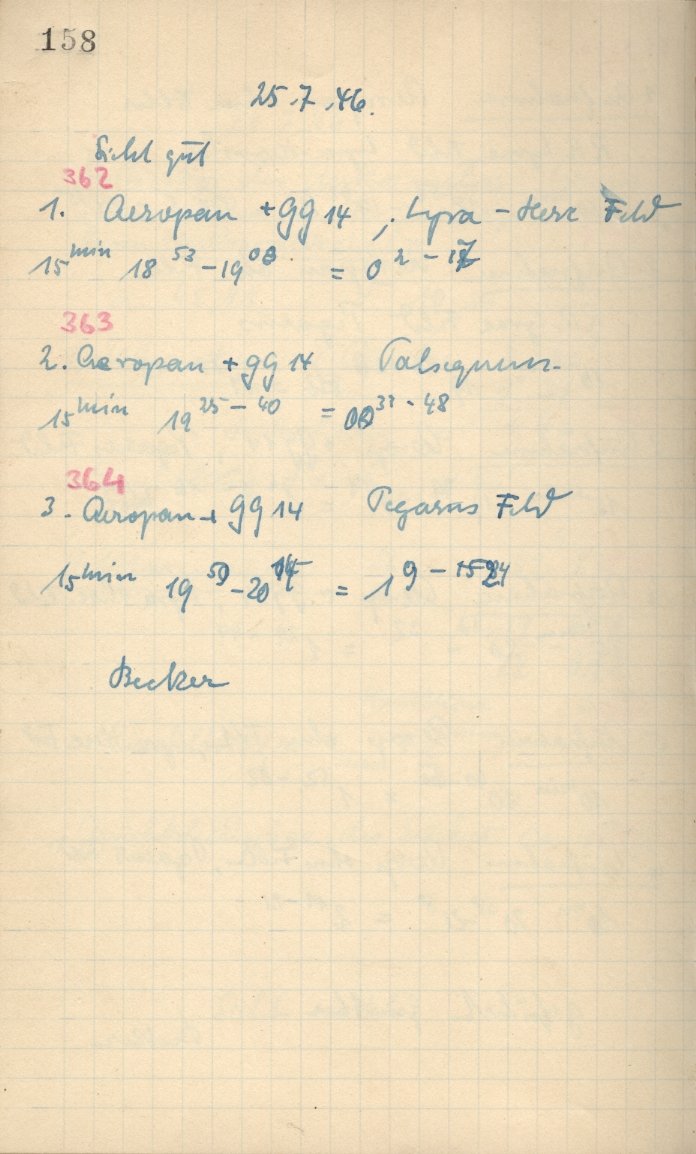 158
25.7.46.
Sicht gut
362
1. Aeropan + gg 14, Lyra - Herc Feld
15 min 18 53 - 19 08 = 0 2 - 17
363
2. Aeropan + gg 14
15 min 19 25 - 40 = 00 33 - 48
364
3. Aeropan + gg 14 Pegasus Feld
15 min 19 59 - 20 14 = 1 9 - 24
Becker